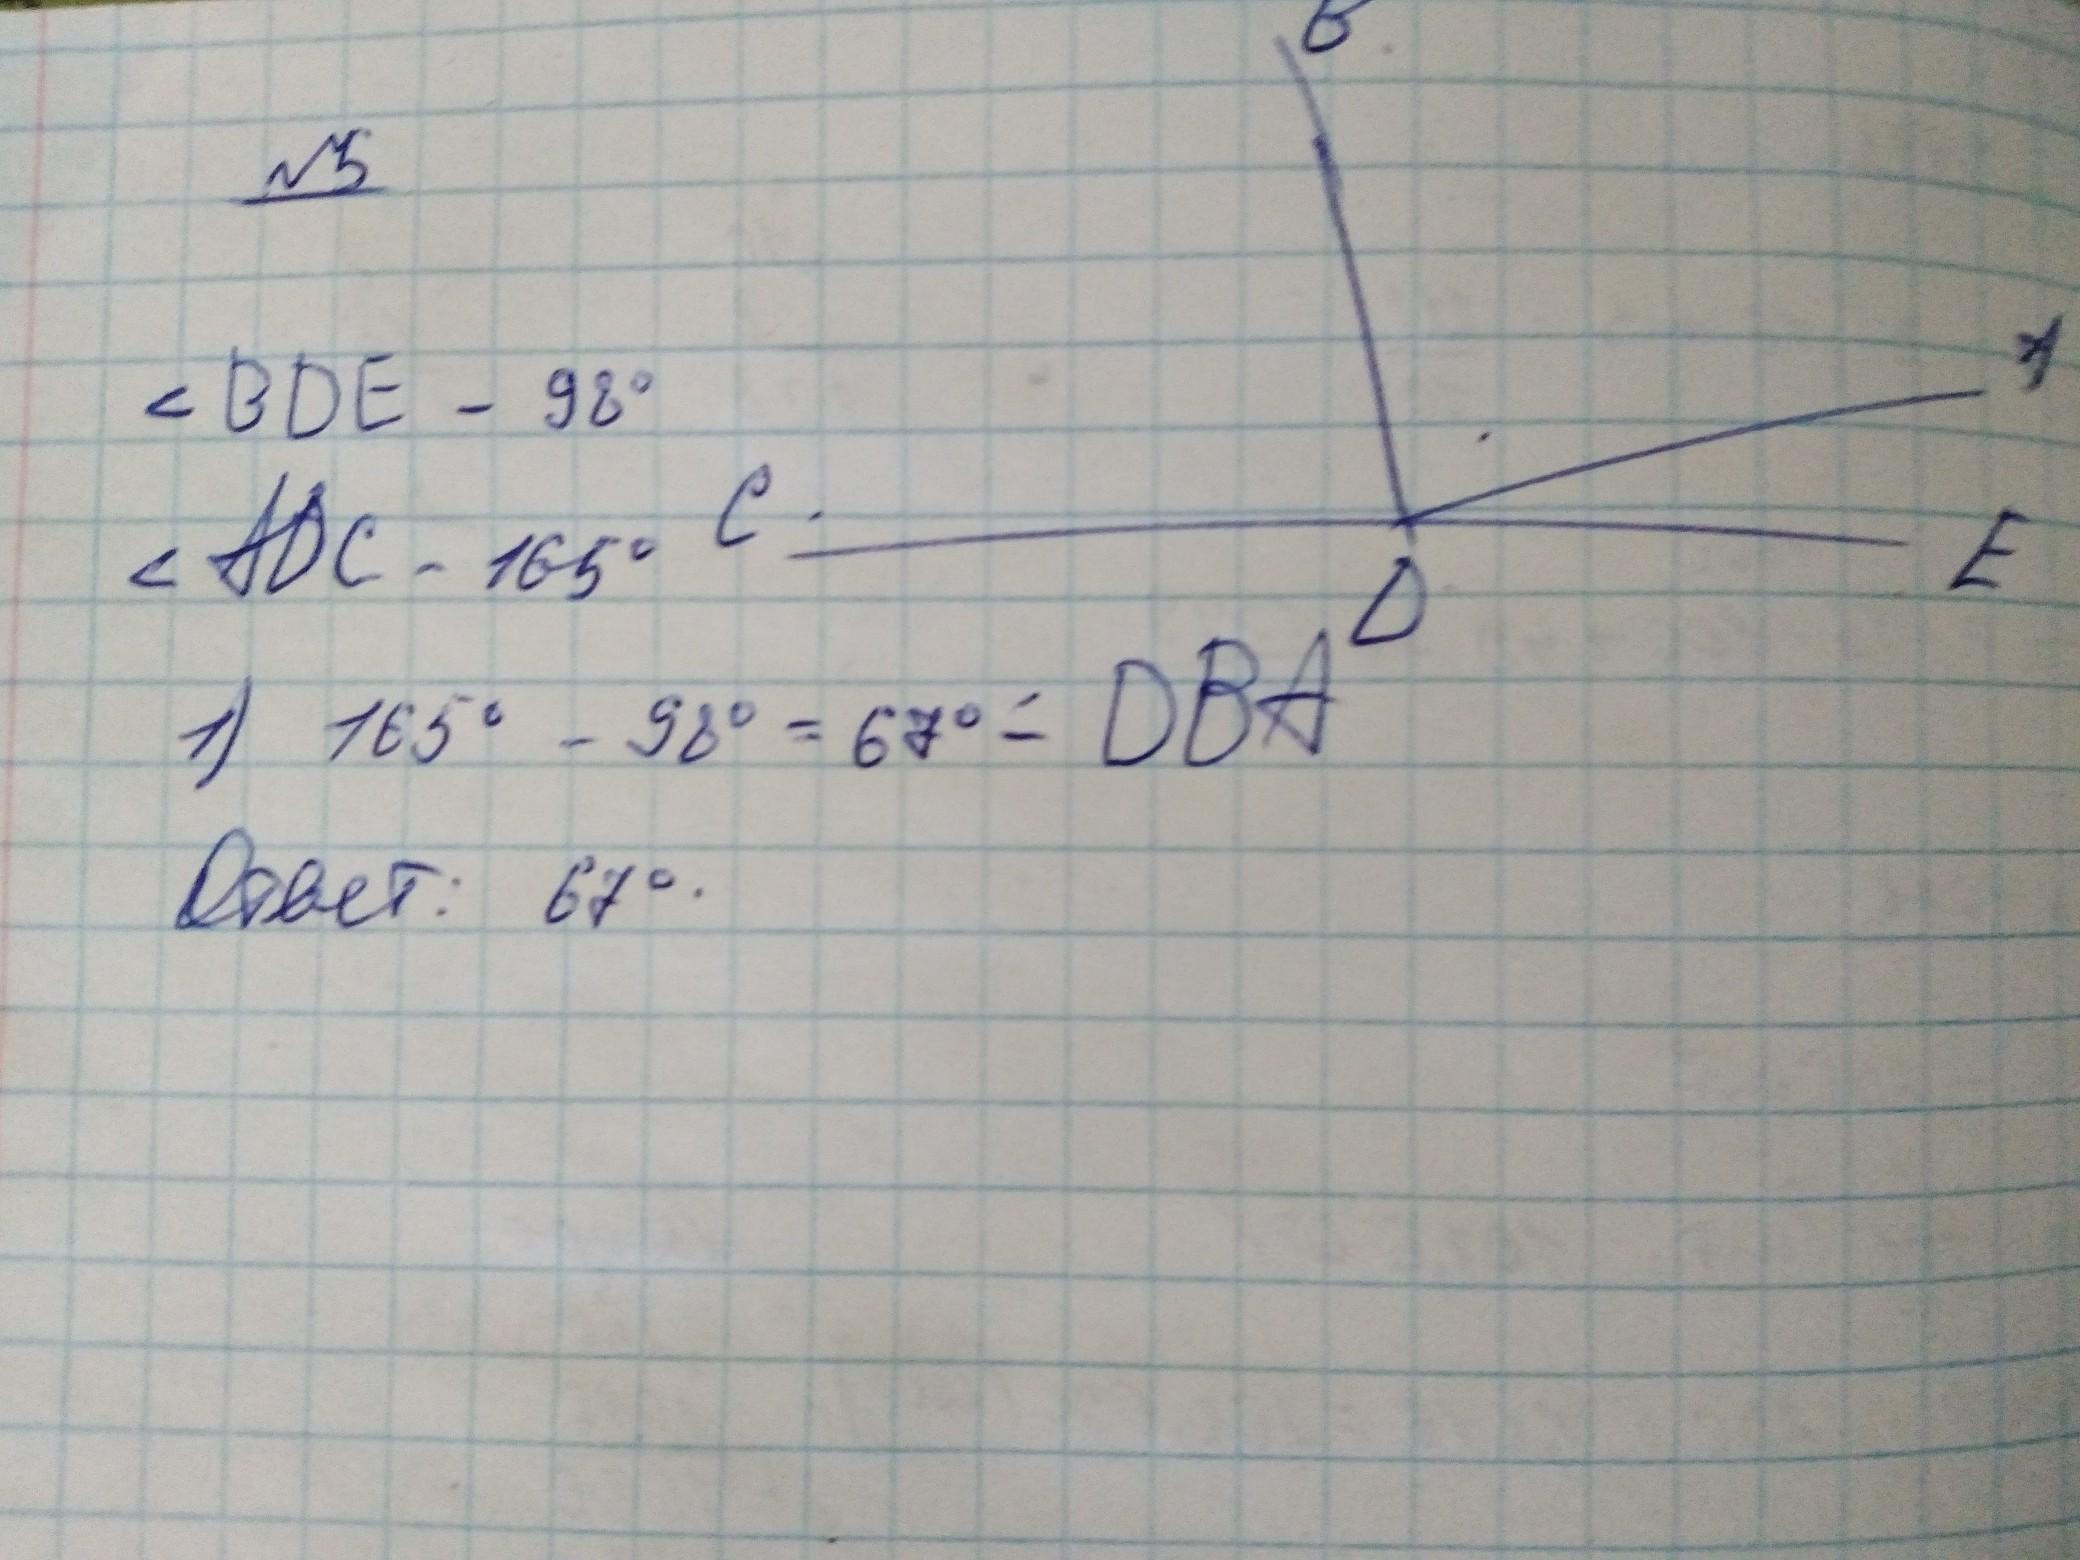 В
№5
А
<BDE - 98°
<ADC - 165°
C
E
D
1) 165° - 98° = 67° = DBA
Ответ: 67°.